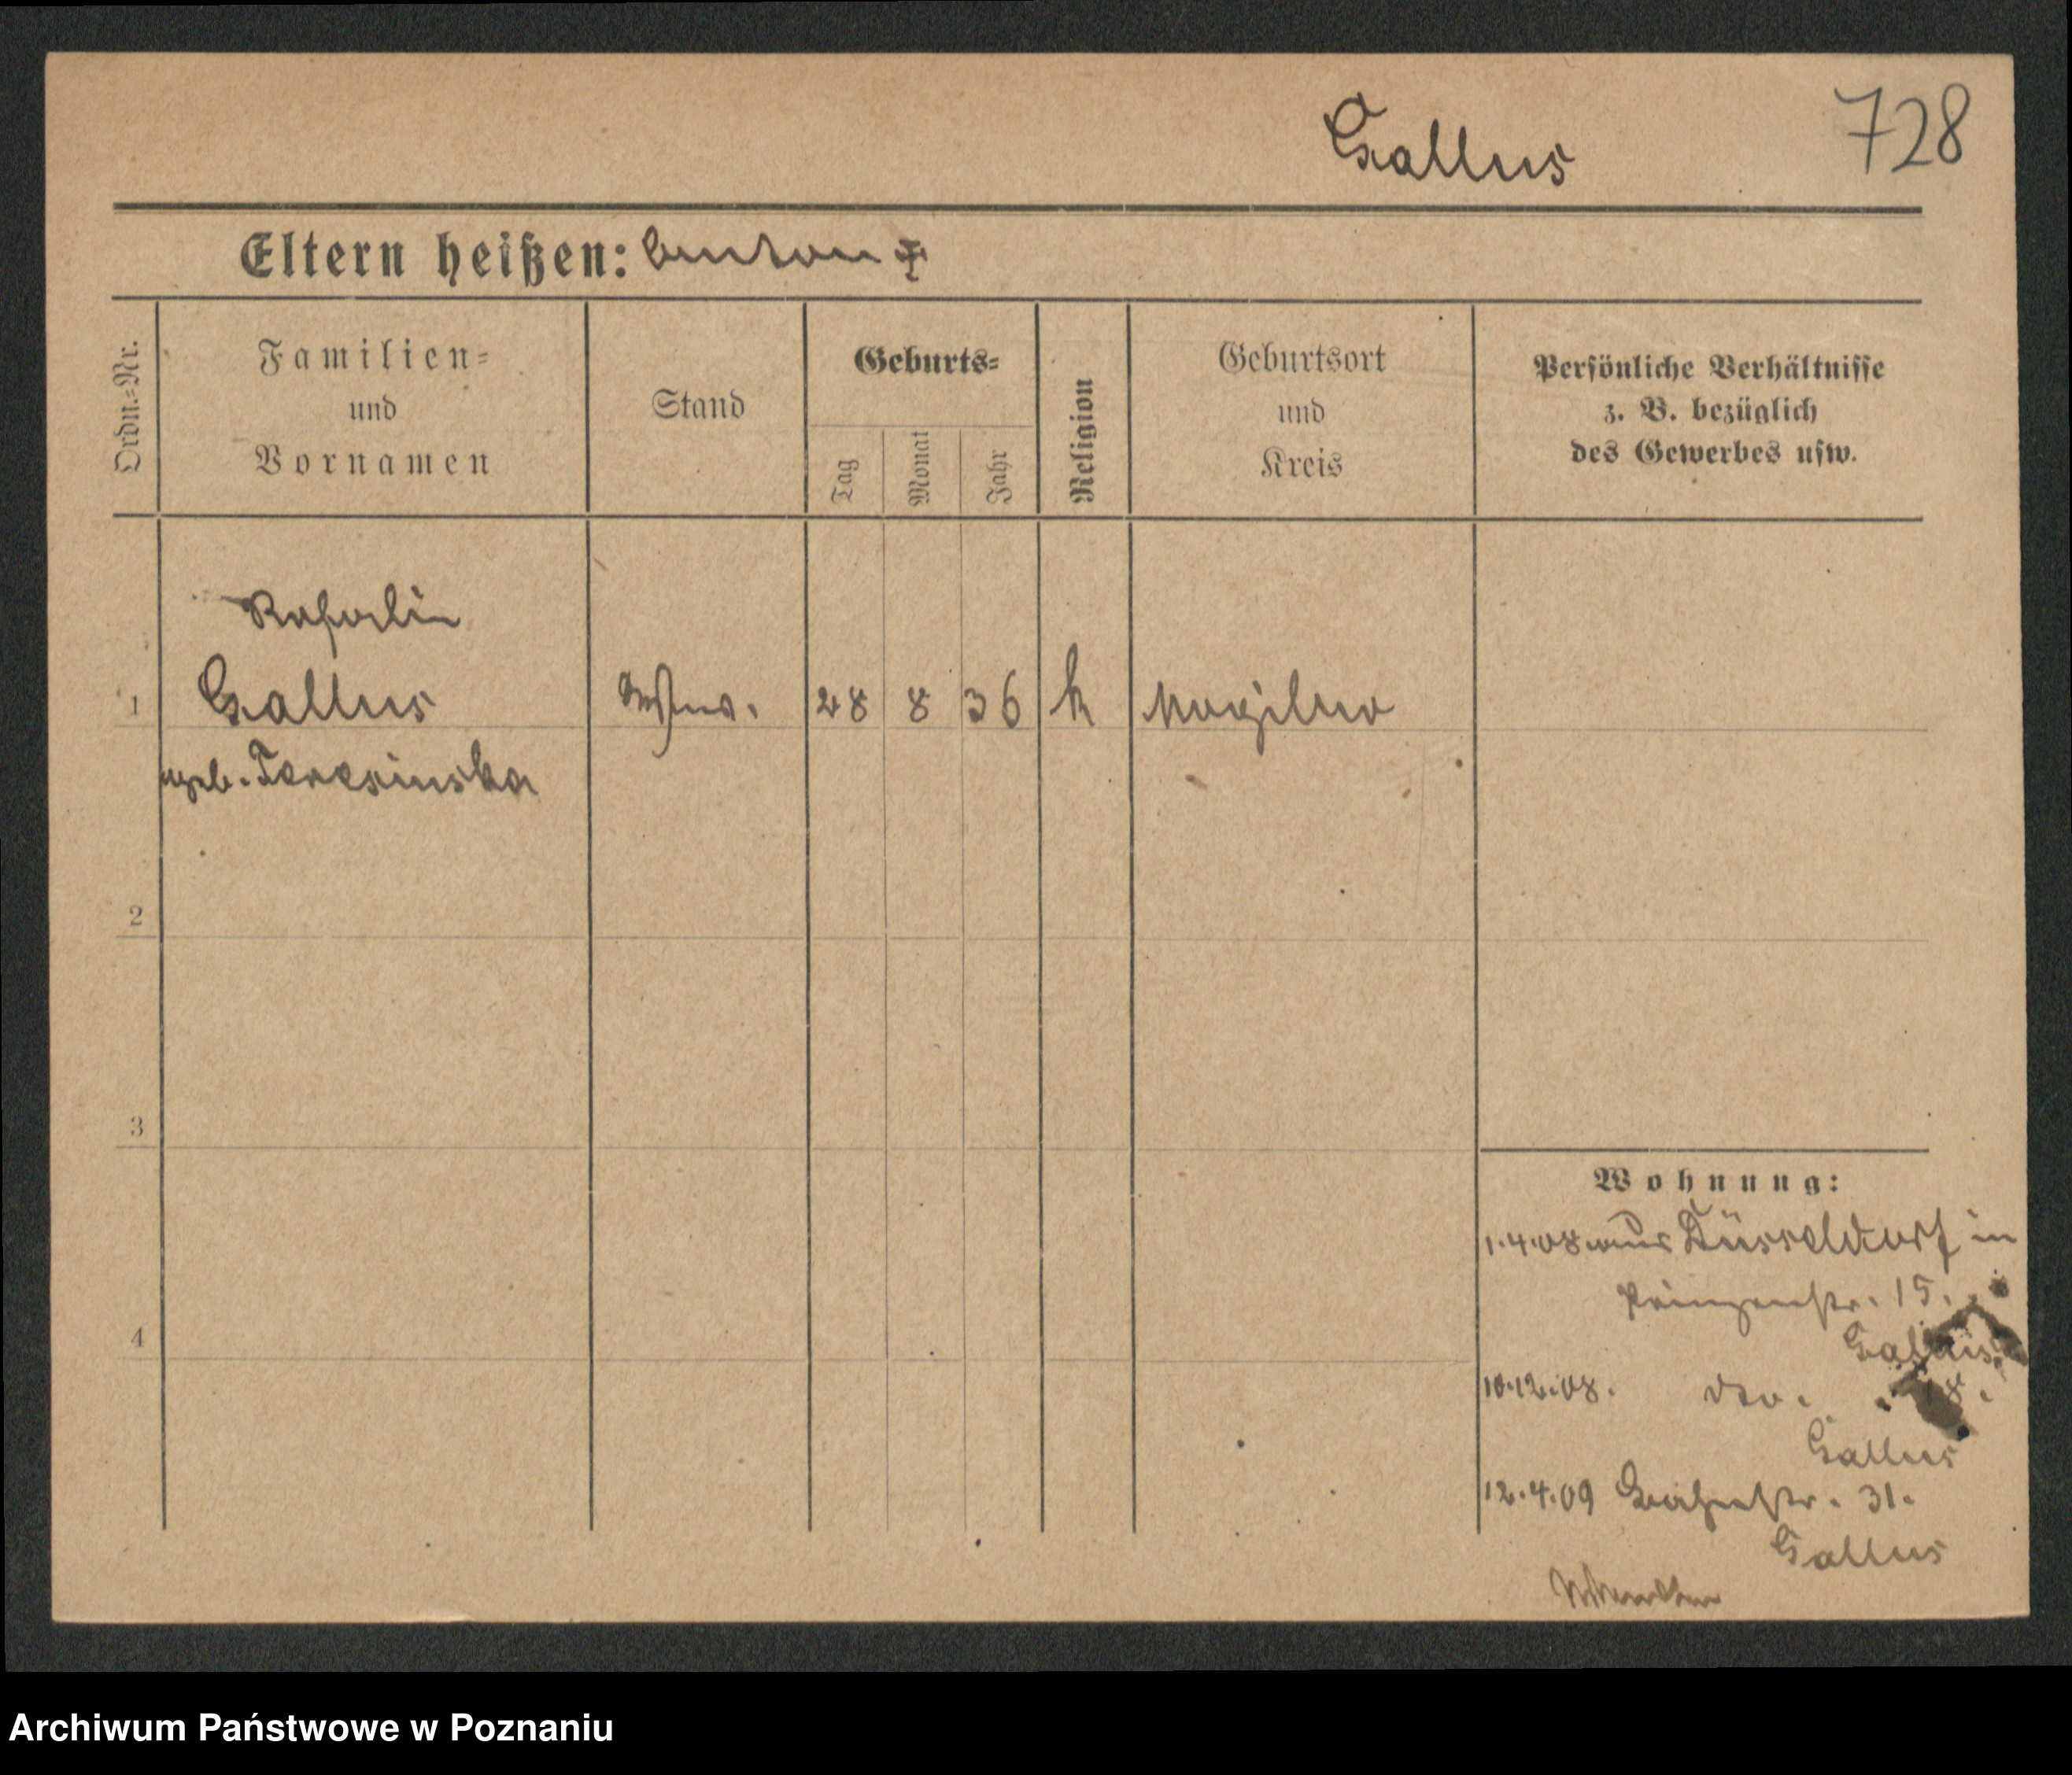 Gallus 728
Eltern heißen: Anton
Ordn.-Nr.
Familien-
und
Vornamen
Stand
Geburts-
Tag
Monat
Jahr
Religion
Geburtsort
und
Kreis
Persönliche Verhältnisse
z. B. bezüglich
des Gewerbes usw.
Rosalie
1 Gallus 28 8 36 k Mogilno
geb. Teresinska
2
3
Wohnung:
1.4.08 aus Düsseldorf in
Prinzenstr. 15.
4
Gallus
10.12.08. dto. 8.
Gallus
12.4.09 31.
Gallus
Archiwum Państwowe w Poznaniu